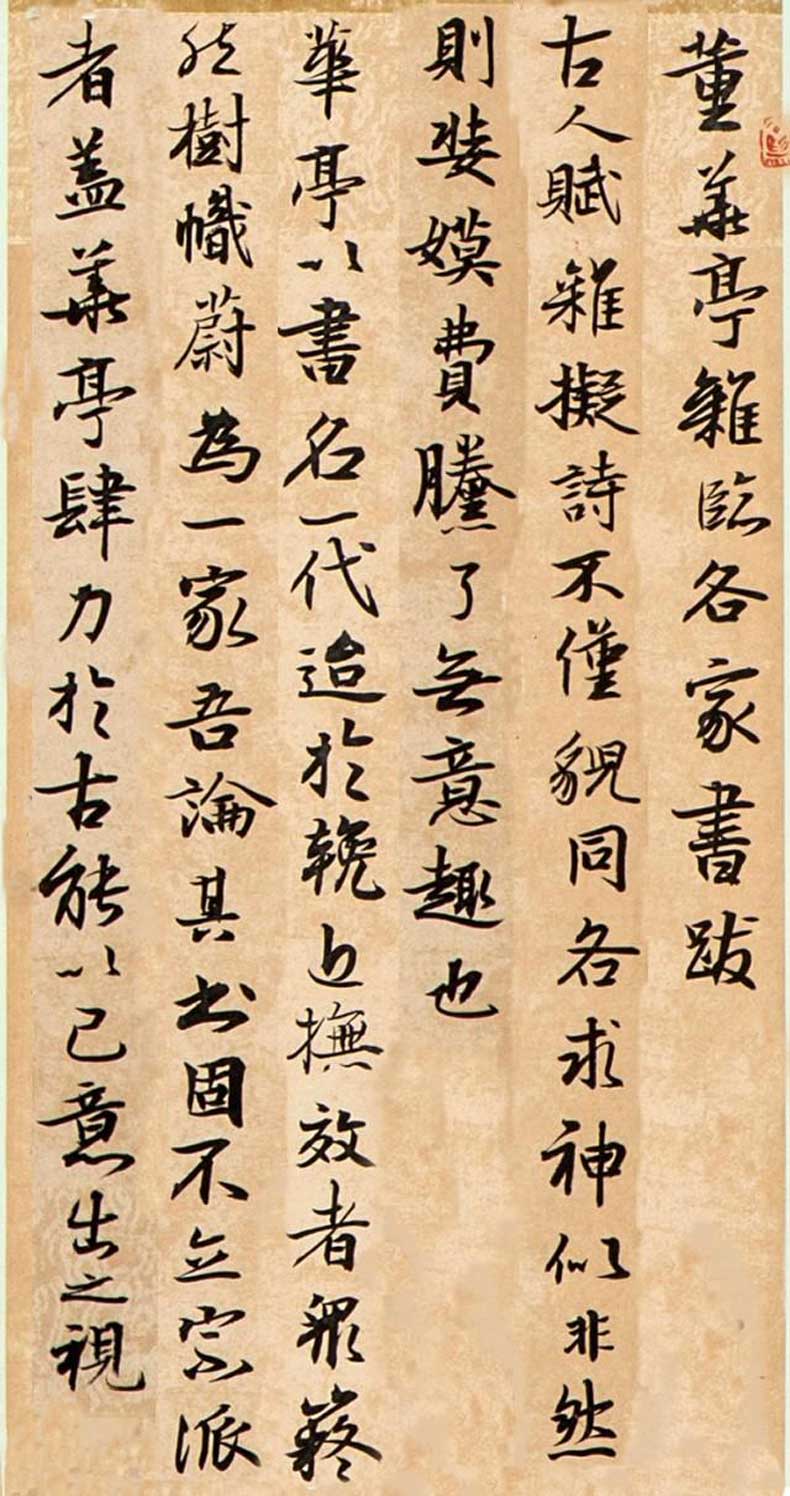 董華亭雜臨各家書跋
古人賦雜擬詩不僅貌同各求神似非然
則裝嫫費黱了無意趣也
華亭以書名一代迨於輓近撫效者眾嶷
然樹幟蔚為一家吾論其書固不立宗派
者蓋華亭肆力於古能以己意出之視